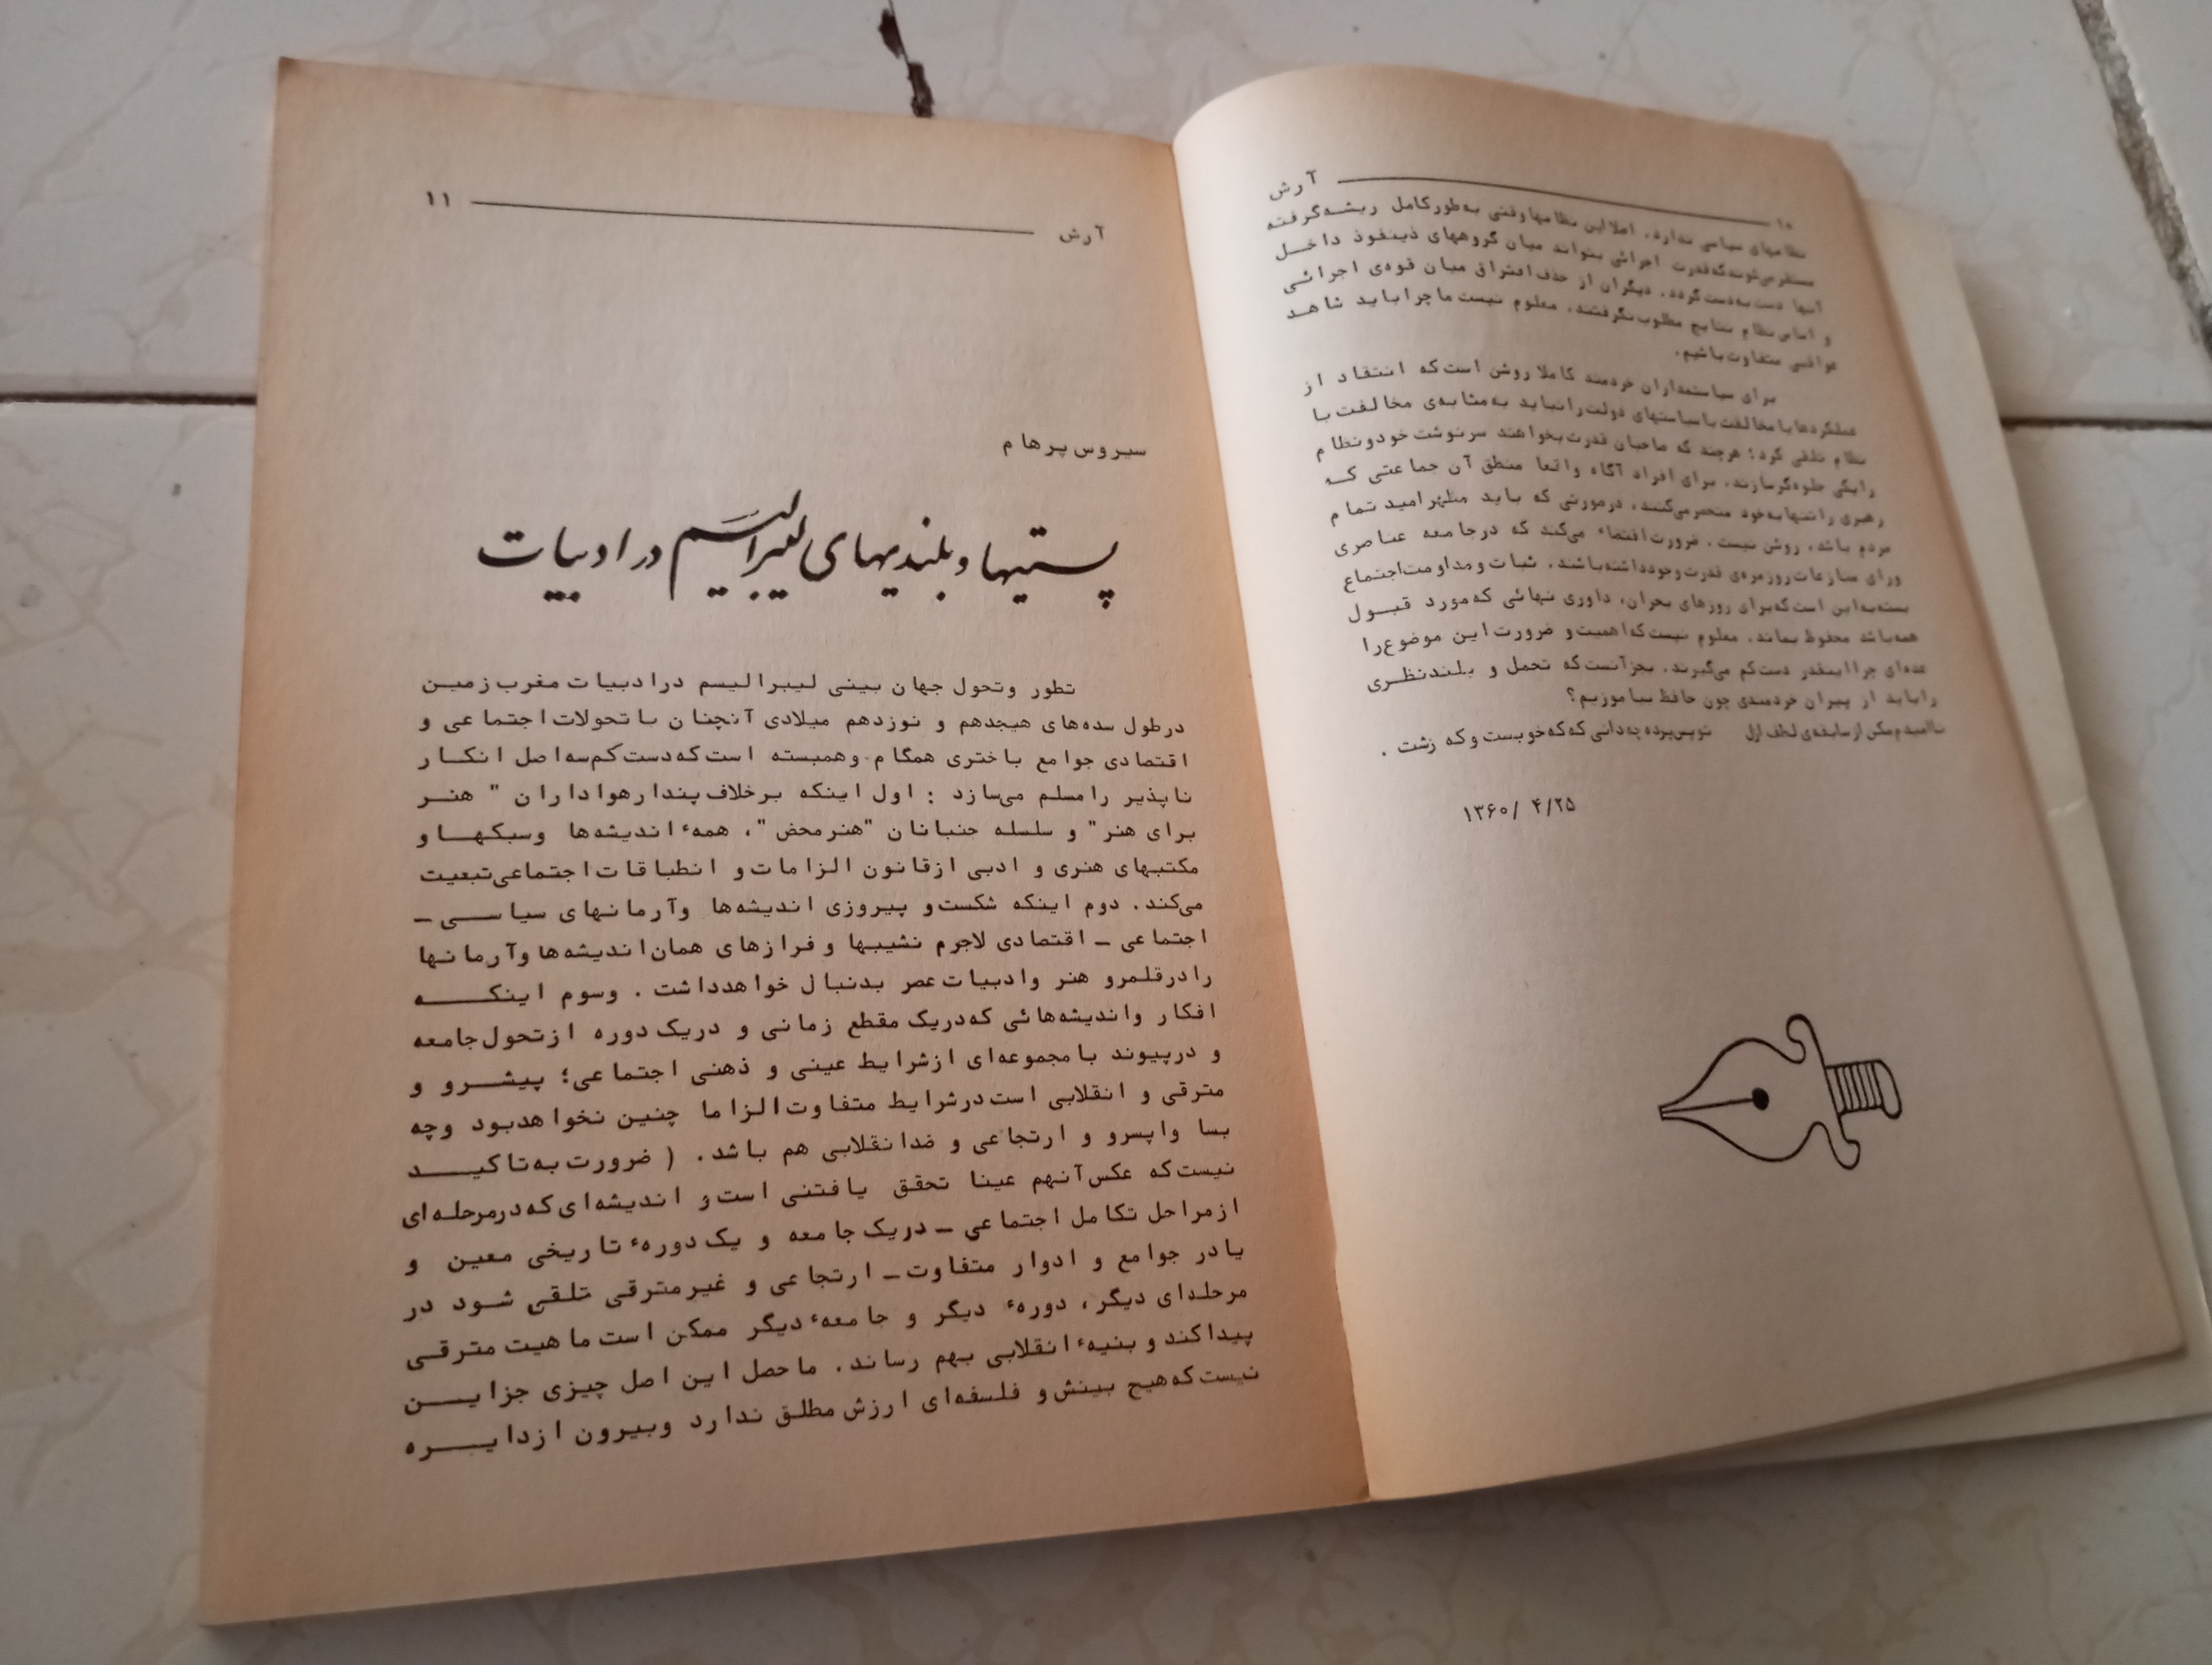 ۱۰ آرش
نظامهای سیاسی ندارد. اصلا این نظامها وقتی به‌طور کامل ریشه گرفته
مستقر می‌شوند که قدرت اجرائی بتواند میان گروههای ذینفوذ داخل
آنها دست به دست گردد. دیگران از حذف افتراق میان قوه‌ی اجرائی
و اساس نظام نتایج مطلوب نگرفتند. معلوم نیست ما چرا باید شاهد
عواقبی متفاوت باشیم.
برای سیاستمداران خردمند کاملا روشن است که انتقاد از
عملکردها یا مخالفت با سیاستهای دولت را نباید به مثابه‌ی مخالفت با
نظام تلقی کرد؛ هرچند که صاحبان قدرت بخواهند سرنوشت خود و نظام
را یکی جلوه‌گر سازند. برای افراد آگاه واقعا منطق آن جماعتی که
رهبری را تنها به خود منحصر می‌کنند، در صورتی که باید مظهر امید تمام
مردم باشد، روشن نیست. ضرورت اقتضاء می‌کند که در جامعه عناصری
ورای منازعات روزمره‌ی قدرت وجود داشته باشند. ثبات و مداومت اجتماع
بسته به این است که برای روزهای بحران، داوری نهائی که مورد قبول
همه باشد محفوظ بماند. معلوم نیست که اهمیت و ضرورت این موضوع را
عده‌ای چرا اینقدر دست کم می‌گیرند. بجز آنست که تحمل و بلندنظری
را باید از پیران خردمندی چون حافظ بیاموزیم؟
ناامیدم مکن از سابقه‌ی لطف ازل تو پس پرده چه دانی که که خوبست و که زشت .
۱۳۶۰/ ۴/۲۵
آرش ۱۱
سیروس پرهام
پستیها و بلندیهای لیبرالیسم در ادبیات
تطور وتحول جهان بینی لیبرالیسم درادبیات مغرب زمین
درطول سده‌های هیجدهم و نوزدهم میلادی آنچنان باتحولات اجتماعی و
اقتصادی جوامع باختری همگام وهمبسته است که دست کم سه اصل انکار
ناپذیر رامسلم می‌سازد : اول اینکه برخلاف پندارهواداران " هنر
برای هنر" و سلسله جنبانان "هنرمحض"، همهٔ اندیشه‌ها وسبکها و
مکتبهای هنری و ادبی ازقانون الزامات و انطباقات اجتماعی تبعیت
می‌کند. دوم اینکه شکست و پیروزی اندیشه‌ها وآرمانهای سیاسی ـ
اجتماعی ـ اقتصادی لاجرم نشیبها و فرازهای همان اندیشه‌ها وآرمانها
رادرقلمرو هنر وادبیات عصر بدنبال خواهدداشت . وسوم اینکه
افکار واندیشه‌هائی که دریک مقطع زمانی و دریک دوره ازتحول جامعه
و درپیوند بامجموعه‌ای ازشرایط عینی و ذهنی اجتماعی؛ پیشرو و
مترقی و انقلابی است درشرایط متفاوت الزاما چنین نخواهدبود وچه
بسا واپسرو و ارتجاعی و ضدانقلابی هم باشد. ( ضرورت به تاکید
نیست که عکس آنهم عینا تحقق یافتنی است و اندیشه‌ای که درمرحله‌ای
ازمراحل تکامل اجتماعی ـ دریک جامعه و یک دورهٔ تاریخی معین و
یادر جوامع و ادوار متفاوت ـ ارتجاعی و غیرمترقی تلقی شود در
مرحله‌ای دیگر، دورهٔ دیگر و جامعهٔ دیگر ممکن است ماهیت مترقی
پیداکند و بنیهٔ انقلابی بهم رساند. ماحصل این اصل چیزی جزاین
نیست که هیچ بینش و فلسفه‌ای ارزش مطلق ندارد وبیرون ازدایره